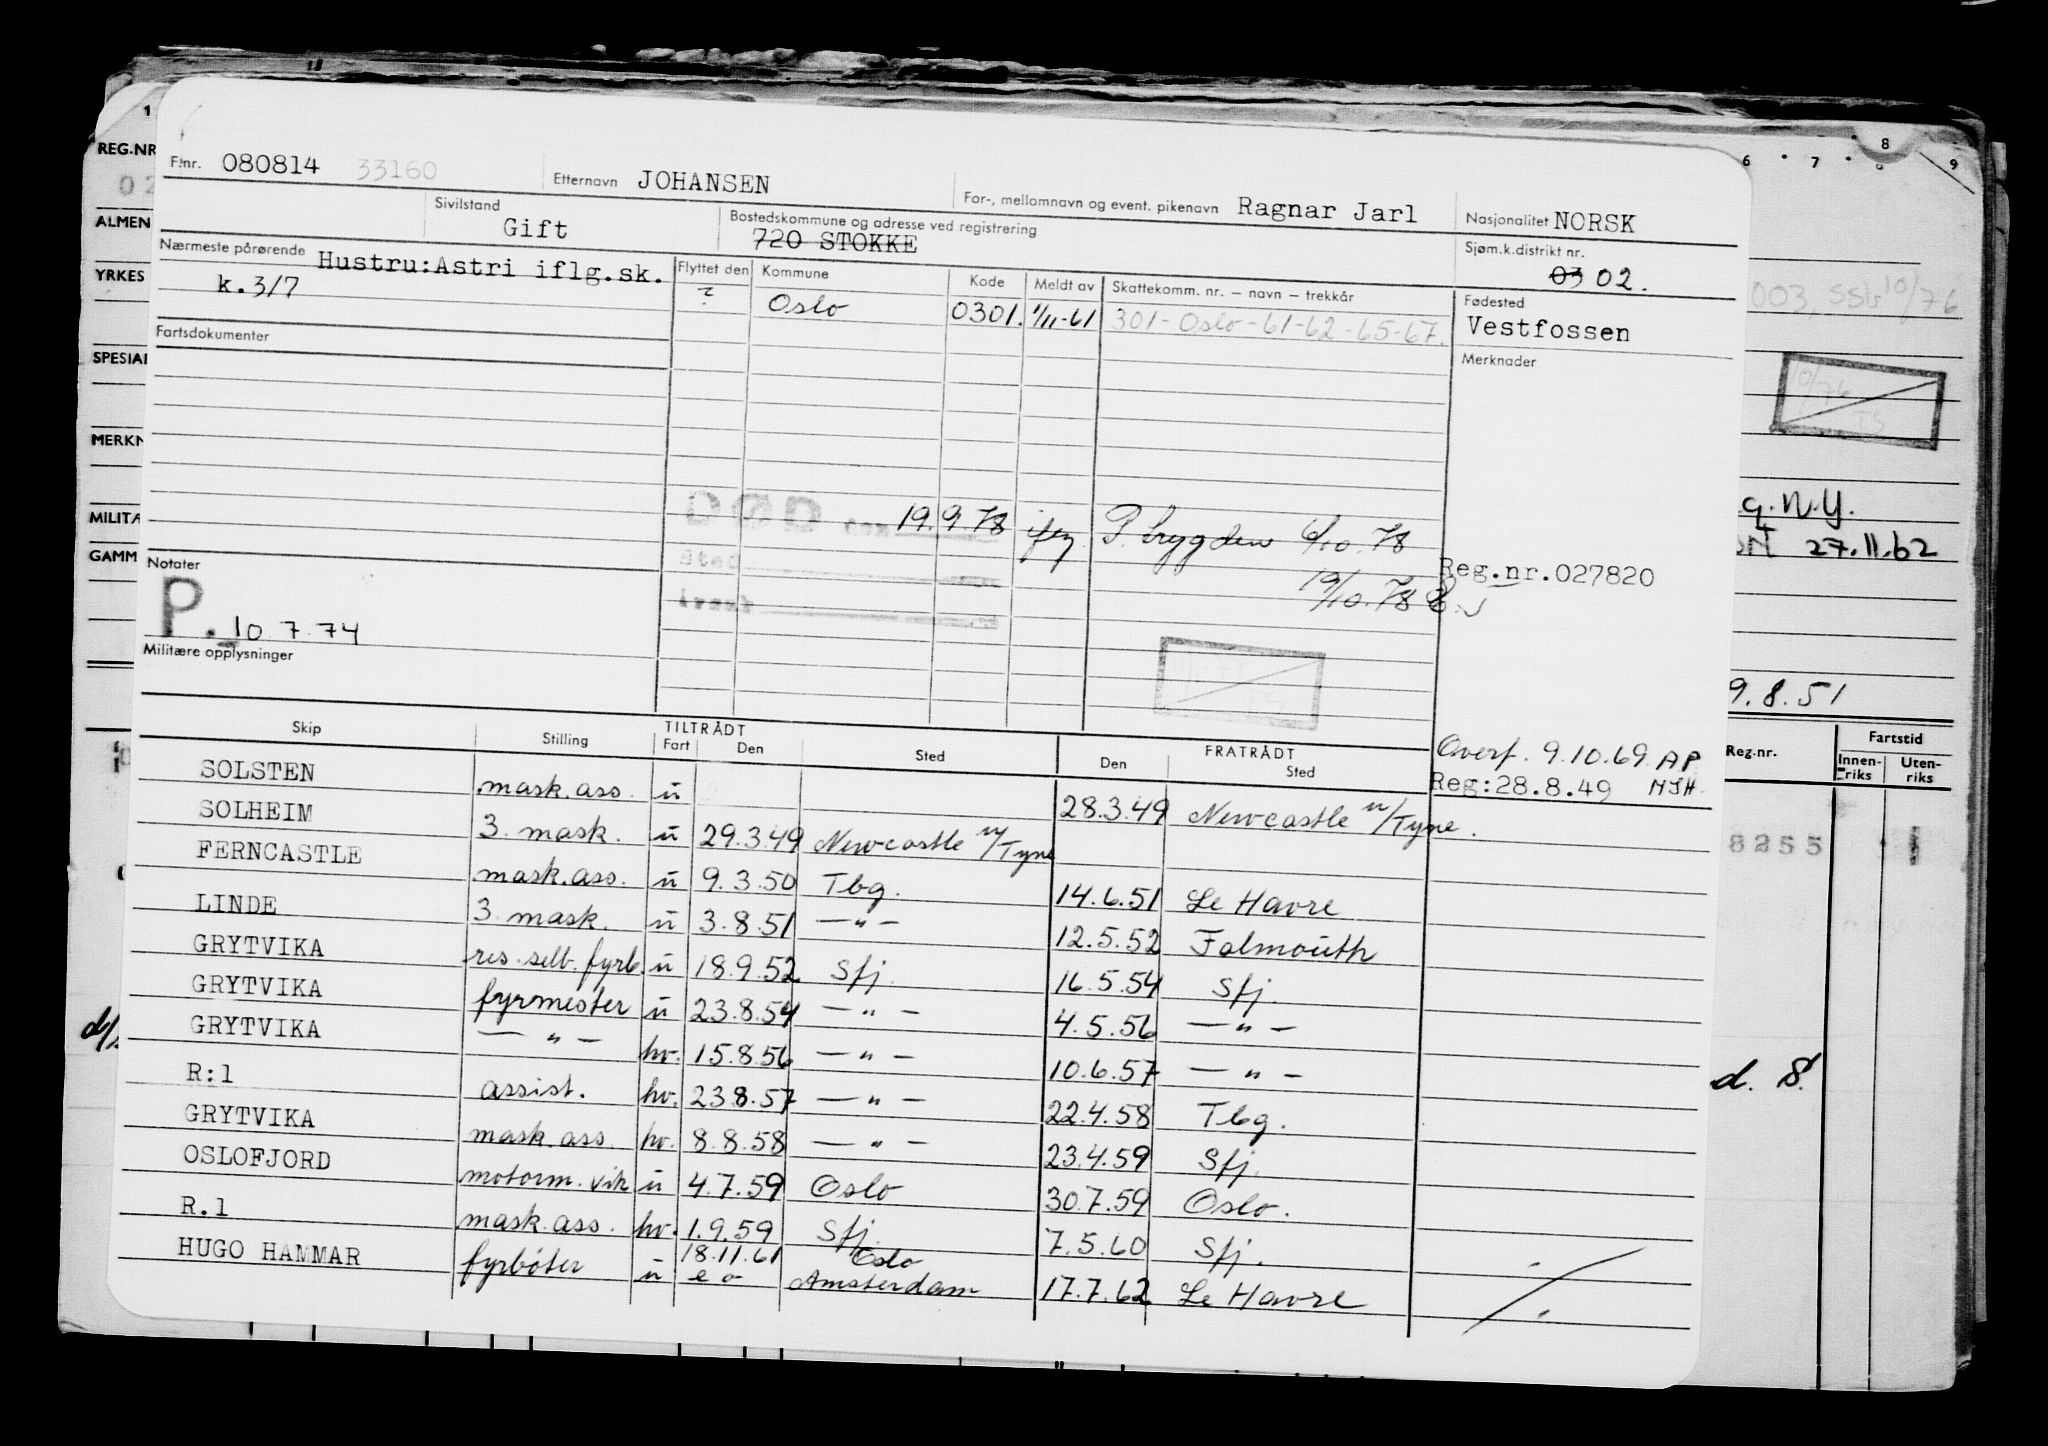 F.nr. 080814 33160 Etternavn JOHANSEN For-, mellomnavn og event. pikenavn Ragnar Jarl Nasjonalitet NORSK
Sivilstand Gift Bostedskommune og adresse ved registrering 720 STOKKE Sjøm.k.distrikt nr. 03 02.
Nærmeste pårørende Hustru:Astri iflg.sk. k.3/7
Flyttet den Kommune Kode Meldt av Skattekomm. nr. — navn — trekkår Fødested
? Oslo 0301. 1/11-61 301-Oslo-61-62-65-67. Vestfossen
Fartsdokumenter
Merknader
DØD den 19.9.78 iflg. P. trygden 6/10.78
Sted
19/10.78
Årsak
Notater
P. 10 7.74
Reg.nr.027820
Militære opplysninger
Overf. 9.10.69 AP
Reg:28.8.49 NJH
Skip Stilling TILTRÅDT Fart Den Sted FRATRÅDT Den Sted
SOLSTEN mask.ass. u 28.3.49 Newcastle u/Tyne.
SOLHEIM 3. mask. u 29.3.49 Newcastle u/Tyne
FERNCASTLE mask.ass. u 9.3.50 Tbg. 14.6.51 Le Havre
LINDE 3. mask. u 3.8.51 — " — 12.5.52 Falmouth
GRYTVIKA res. selb. fyrb. u 18.9.52 Sfj. 16.5.54 Sfj.
GRYTVIKA fyrmester u 23.8.54 — " — 4.5.56 — " —
GRYTVIKA — " — hv. 15.8.56 — " — 10.6.57 — " —
R:1 assist. hv. 23.8.57 — " — 22.4.58 Tbg.
GRYTVIKA mask.ass. hv. 8.8.58 — " — 23.4.59 Sfj.
OSLOFJORD motorm. vik u 4.7.59 Oslo 30.7.59 Oslo.
R.1 mask.ass. hv. 1.9.59 Sfj. 7.5.60 Sfj.
HUGO HAMMAR fyrbøter u 18.11.61 Oslo
Amsterdam 17.7.62 Le Havre
1
REG.NR
02
ALMEN
YRKES
SPESIAL
MERKN
MILITÆ
GAMM
6 7 8 9
8
003, SSB 10/76
10/76
TS
q. N.Y.
27.11.62
9.8.51
Reg.nr. Fartstid
Innen-riks Uten-riks
8255
d. 8.